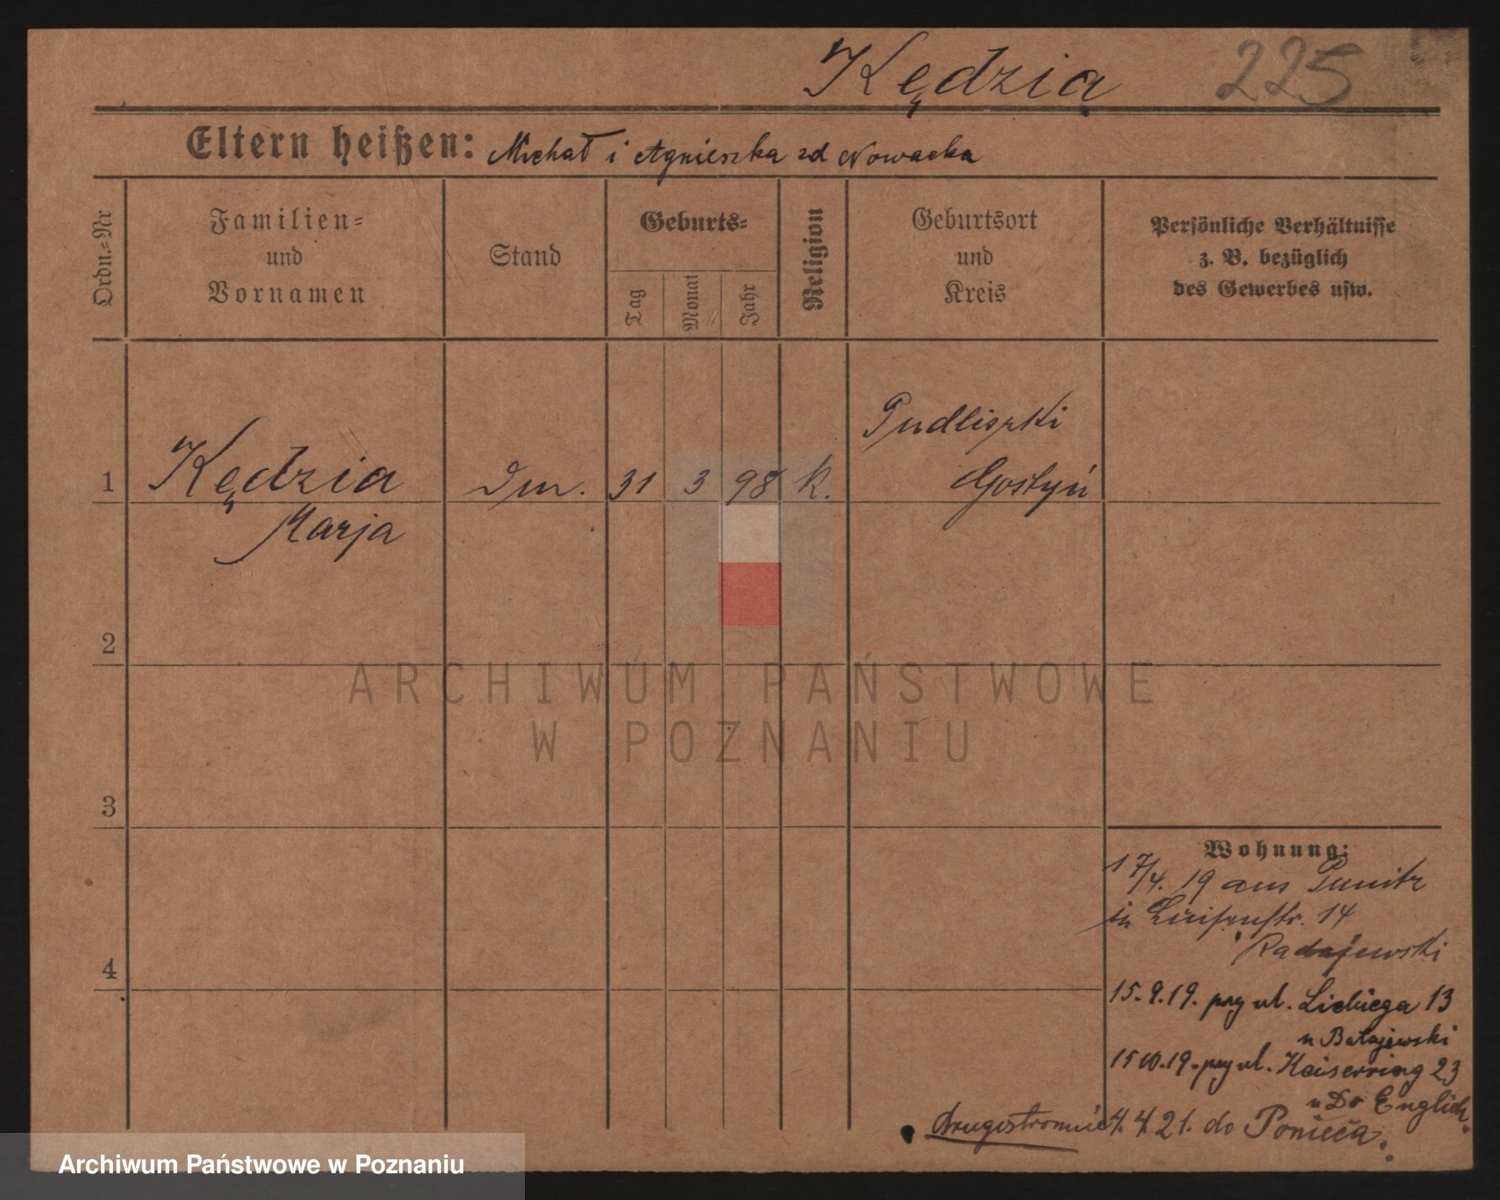 Kędzia 225
Eltern heißen: Michał i Agnieszka zd Nowacka
Ordn.-Nr
Familien-
und
Vornamen
Stand
Geburts-
Tag
Monat
Jahr
Religion
Geburtsort
und
Kreis
Persönliche Verhältnisse
z. B. bezüglich
des Gewerbes usw.
1 Kędzia 31 3 98 k. Pudliszki
Gostyń
Marja
2
3
4
Wohnung:
17/4. 19 aus Punitz
in Luisenstr. 14
Radajewski
15.9.19. przy ul. Liebiega 13
u Batajewski
15 10.19. przy ul. Kaiserring 23
u Dr Englich
drugostronnie 4. 4. 21. do Ponieca.
ARCHIWUM PAŃSTWOWE
W POZNANIU
Archiwum Państwowe w Poznaniu